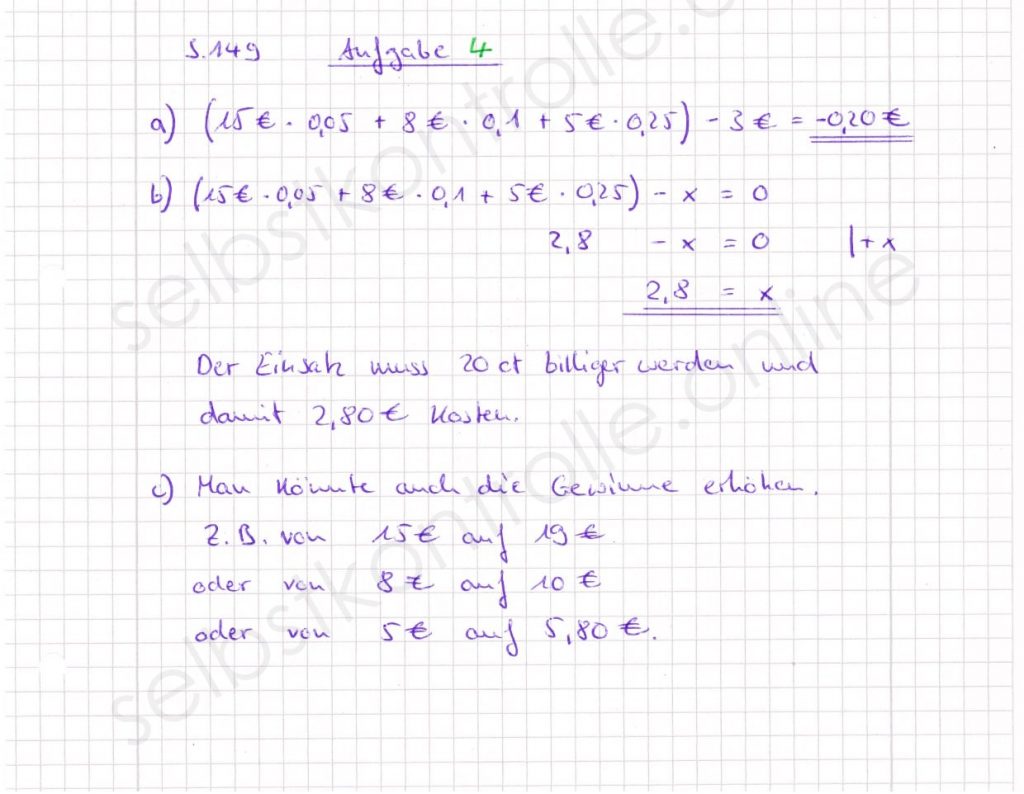 S.149 Aufgabe 4
a) (15€ · 0,05 + 8€ · 0,1 + 5€ · 0,25) - 3€ = -0,20€
b) (15€ · 0,05 + 8€ · 0,1 + 5€ · 0,25) - x = 0
2,8 - x = 0 |+x
2,8 = x
Der Einsatz muss 20 ct billiger werden und
damit 2,80€ kosten.
c) Man könnte auch die Gewinne erhöhen.
Z.B. von 15€ auf 19€
oder von 8€ auf 10€
oder von 5€ auf 5,80€.
selbstkontrolle.online
selbstkontrolle.online